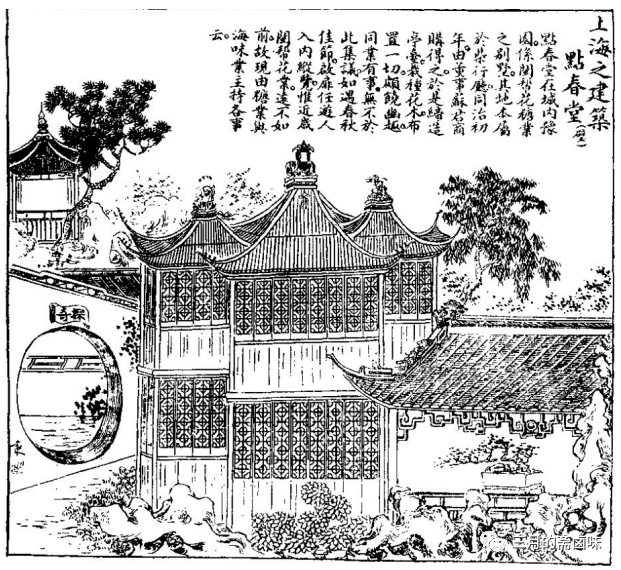 上海之建築
點春堂
點春堂在城內豫
園係閩幫花糖業
之别墅其地本屬
於柴行廳同治初
年由董事蘇君商
購得之於是繕造
亭臺栽種花木布
置一切頗饒幽趣
同業有事無不於
此集議如遇春秋
佳節啟扉任遊人
入內縱覽惟近歲
閩幫花業遠不如
前故現由糖業與
海味業主持各事
云
探奇
的斋卤味